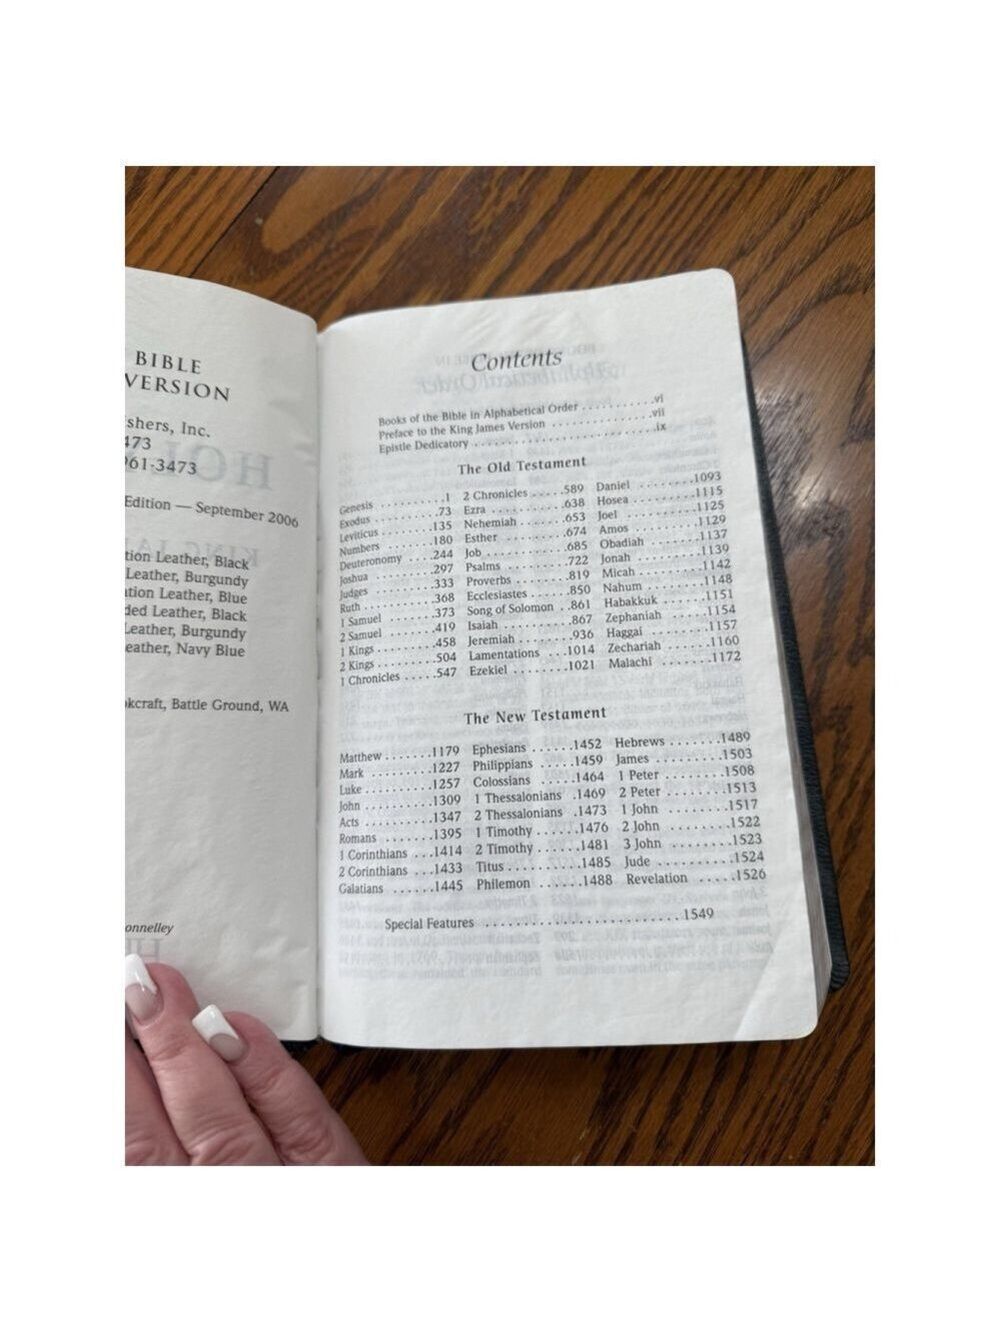 BIBLE
VERSION
shers, Inc.
473
961-3473
Edition — September 2006
tion Leather, Black
Leather, Burgundy
ation Leather, Blue
ded Leather, Black
Leather, Burgundy
eather, Navy Blue
okcraft, Battle Ground, WA
onnelley
Contents
Books of the Bible in Alphabetical Order ...........vi
Preface to the King James Version ................vii
Epistle Dedicatory ..............................ix
The Old Testament
Genesis .........1
Exodus .........73
Leviticus .......135
Numbers .......180
Deuteronomy ....244
Joshua ........297
Judges ........333
Ruth ..........368
1 Samuel .......373
2 Samuel .......419
1 Kings ........458
2 Kings ........504
1 Chronicles .....547
2 Chronicles .....589
Ezra ..........638
Nehemiah .......653
Esther .........674
Job ...........685
Psalms .........722
Proverbs ........819
Ecclesiastes .....850
Song of Solomon ..861
Isaiah .........867
Jeremiah ........936
Lamentations ...1014
Ezekiel ........1021
Daniel ........1093
Hosea .........1115
Joel ..........1125
Amos .........1129
Obadiah .......1137
Jonah .........1139
Micah .........1142
Nahum ........1148
Habakkuk ......1151
Zephaniah ......1154
Haggai ........1157
Zechariah ......1160
Malachi .......1172
The New Testament
Matthew .......1179
Mark .........1227
Luke .........1257
John .........1309
Acts .........1347
Romans .......1395
1 Corinthians ...1414
2 Corinthians ...1433
Galatians ......1445
Ephesians ......1452
Philippians .....1459
Colossians .....1464
1 Thessalonians .1469
2 Thessalonians .1473
1 Timothy ......1476
2 Timothy ......1481
Titus .........1485
Philemon ......1488
Hebrews .......1489
James ........1503
1 Peter ........1508
2 Peter ........1513
1 John ........1517
2 John ........1522
3 John ........1523
Jude .........1524
Revelation .....1526
Special Features .........................1549